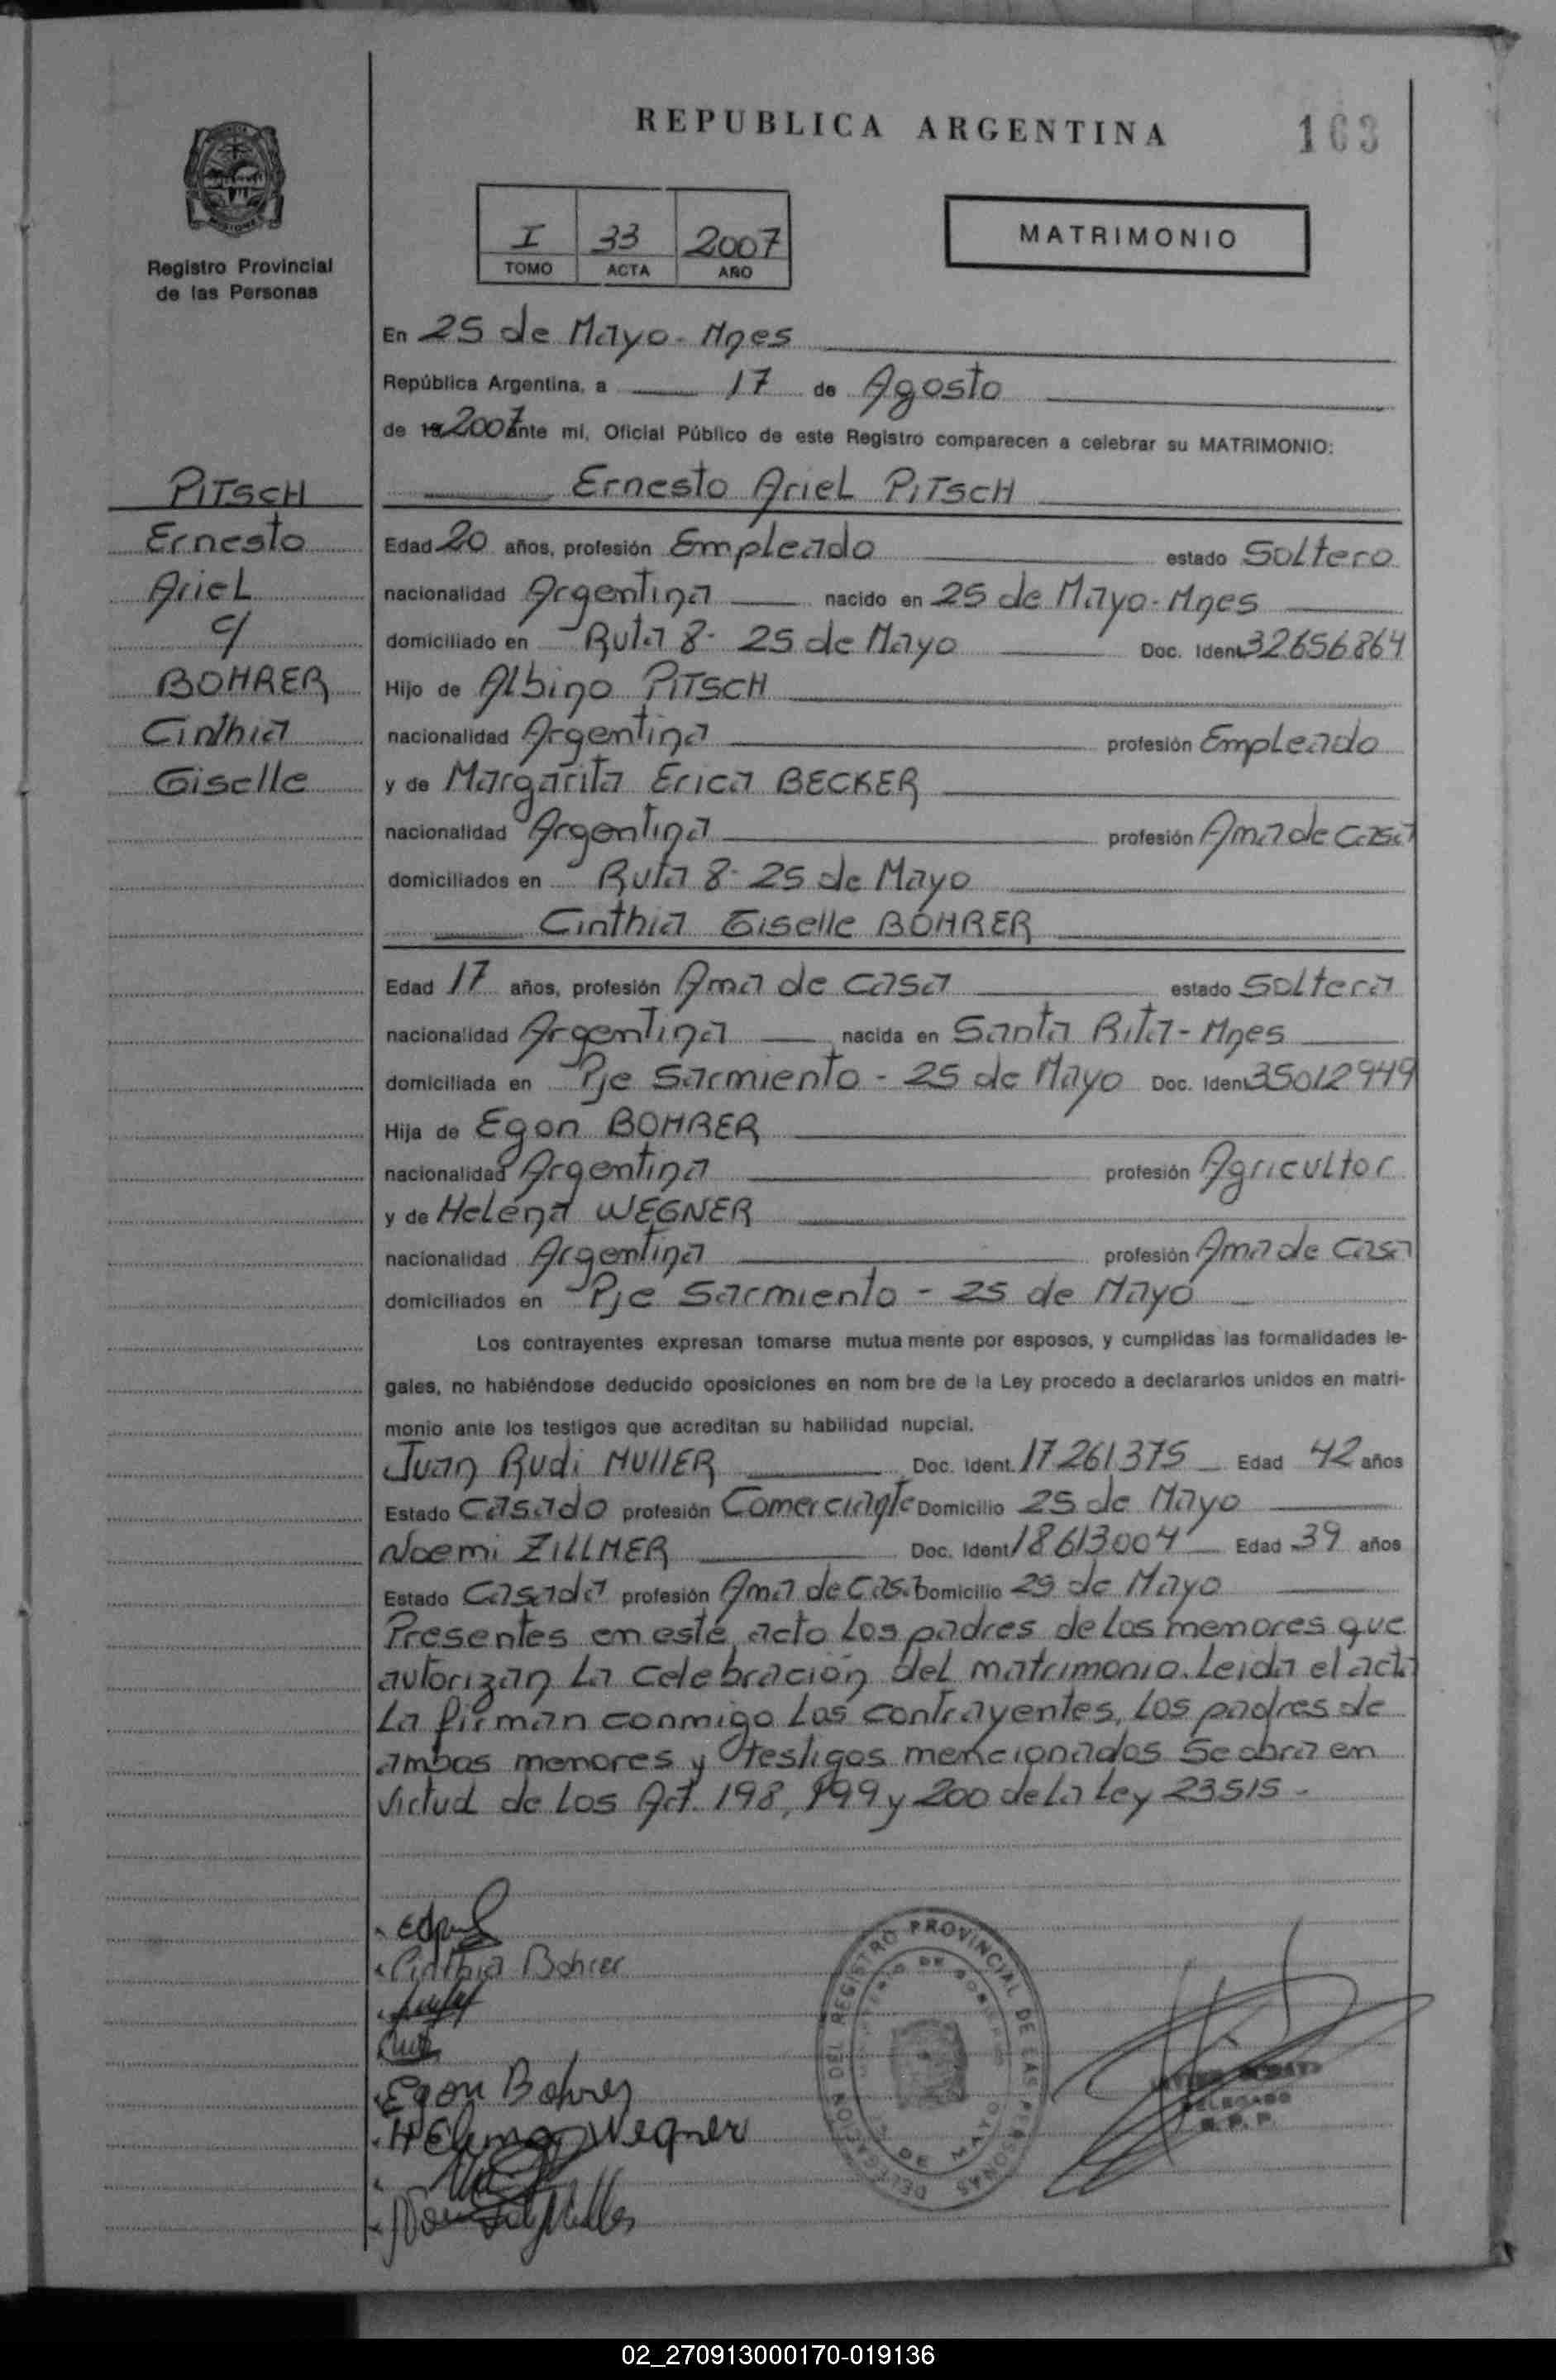 REPUBLICA ARGENTINA
163
Registro Provincial
de las Personas
I 33 2007
TOMO ACTA AÑO
MATRIMONIO
En 25 de Mayo - Mnes
República Argentina, a 17 de Agosto
de 19 2007 ante mi, Oficial Público de este Registro comparecen a celebrar su MATRIMONIO:
PITSCH
Ernesto
Ariel
c/
BOHRER
Cinthia
Giselle
Ernesto Ariel PITSCH
Edad 20 años, profesión Empleado estado Soltero
nacionalidad Argentina nacido en 25 de Mayo - Mnes
domiciliado en Ruta 8 - 25 de Mayo Doc. Ident. 32656864
Hijo de Albino PITSCH
nacionalidad Argentina profesión Empleado
y de Margarita Erica BECKER
nacionalidad Argentina profesión Ama de casa
domiciliados en Ruta 8 - 25 de Mayo
Cinthia Giselle BOHRER
Edad 17 años, profesión Ama de casa estado Soltera
nacionalidad Argentina nacida en Santa Rita - Mnes
domiciliada en Pje Sarmiento - 25 de Mayo Doc. Ident. 35012949
Hija de Egon BOHRER
nacionalidad Argentina profesión Agricultor
y de Helena WEGNER
nacionalidad Argentina profesión Ama de casa
domiciliados en Pje Sarmiento - 25 de Mayo
Los contrayentes expresan tomarse mutua mente por esposos, y cumplidas las formalidades le-
gales, no habiéndose deducido oposiciones en nom bre de la Ley procedo a declararlos unidos en matri-
monio ante los testigos que acreditan su habilidad nupcial.
Juan Rudi MULLER Doc. Ident. 17.261.375 Edad 42 años
Estado Casado profesión Comerciante Domicilio 25 de Mayo
Noemi ZILLMER Doc. Ident. 18613004 Edad 39 años
Estado Casada profesión Ama de Casa Domicilio 25 de Mayo
Presentes en este acto los padres de los menores que
autorizan la celebración del matrimonio. Leida el acta
la firman conmigo los contrayentes, los padres de
ambos menores y testigos mencionados. Se obra en
virtud de los Art. 198, 199 y 200 de la Ley 23515 -
Cinthia Bohrer
Egon Bohrer
HElena Wegner
DELEGACION DEL REGISTRO PROVINCIAL DE LAS PERSONAS
25 DE MAYO
DELEGADO
R.P.P.
02_270913000170-019136